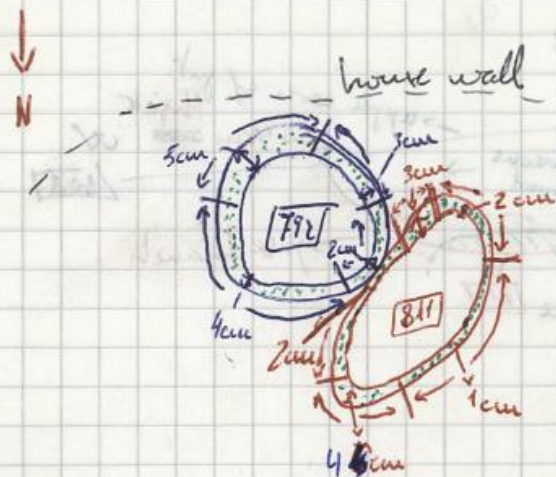 N
house wall
5cm
3cm
3cm
2cm
792
2cm
811
4cm
2cm
1cm
4 cm